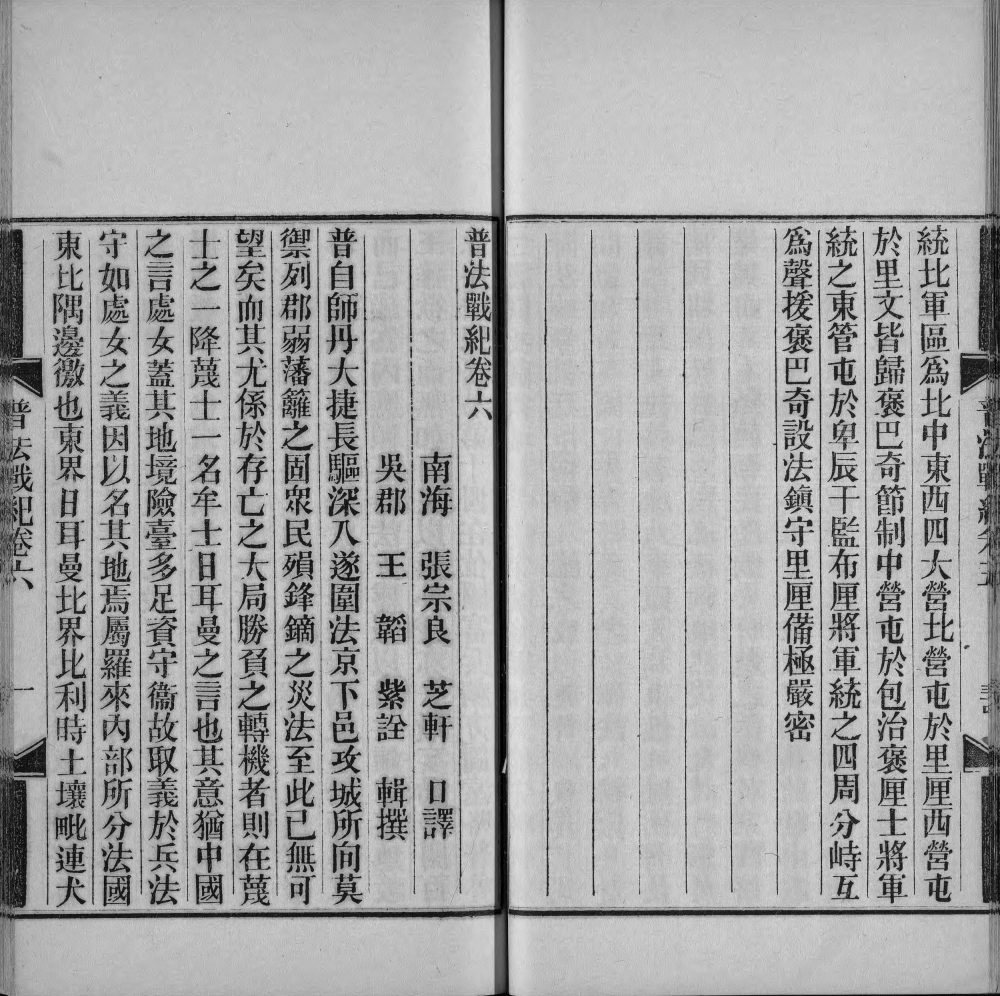 統比軍區爲北中東西四大營北營屯於里厘西營屯
於里文皆歸褒巴奇節制中營屯於包治褒厘士將軍
統之東管屯於卑辰干監布厘將軍統之四周分峙互
爲聲援褒巴奇設法鎮守里厘備極嚴密
普法戰紀卷五
普法戰紀卷六
南海 張宗良 芝軒 口譯
吳郡 王 韜 紫詮 輯撰
普自師丹大捷長驅深入遂圍法京下邑攻城所向莫
禦列郡弱藩籬之固衆民殞鋒鏑之災法至此已無可
望矣而其尤係於存亡之大局勝負之轉機者則在蔑
士之一降蔑士一名牟士日耳曼之言也其意猶中國
之言處女蓋其地境險臺多足資守衞故取義於兵法
守如處女之義因以名其地焉屬羅來內部所分法國
東北隅邊徼也東界日耳曼北界比利時土壤毗連犬
普法戰紀卷六
一